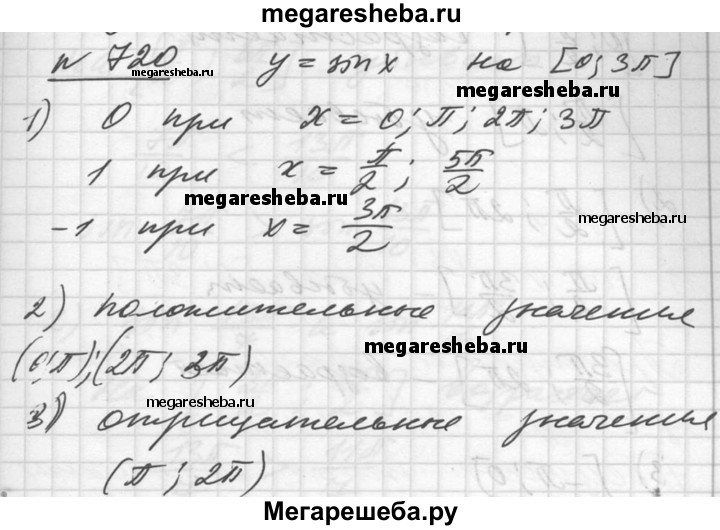 megaresheba.ru
№ 720 y = sin x на [0; 3π]
megaresheba.ru
megaresheba.ru
1) 0 при x = 0; π; 2π; 3π
1 при x = π/2; 5π/2
megaresheba.ru
megaresheba.ru
-1 при x = 3π/2
2) положительные значения
(0; π); (2π; 3π)
megaresheba.ru
megaresheba.ru
3) отрицательные значения
(π; 2π)
Мегарешеба.ру